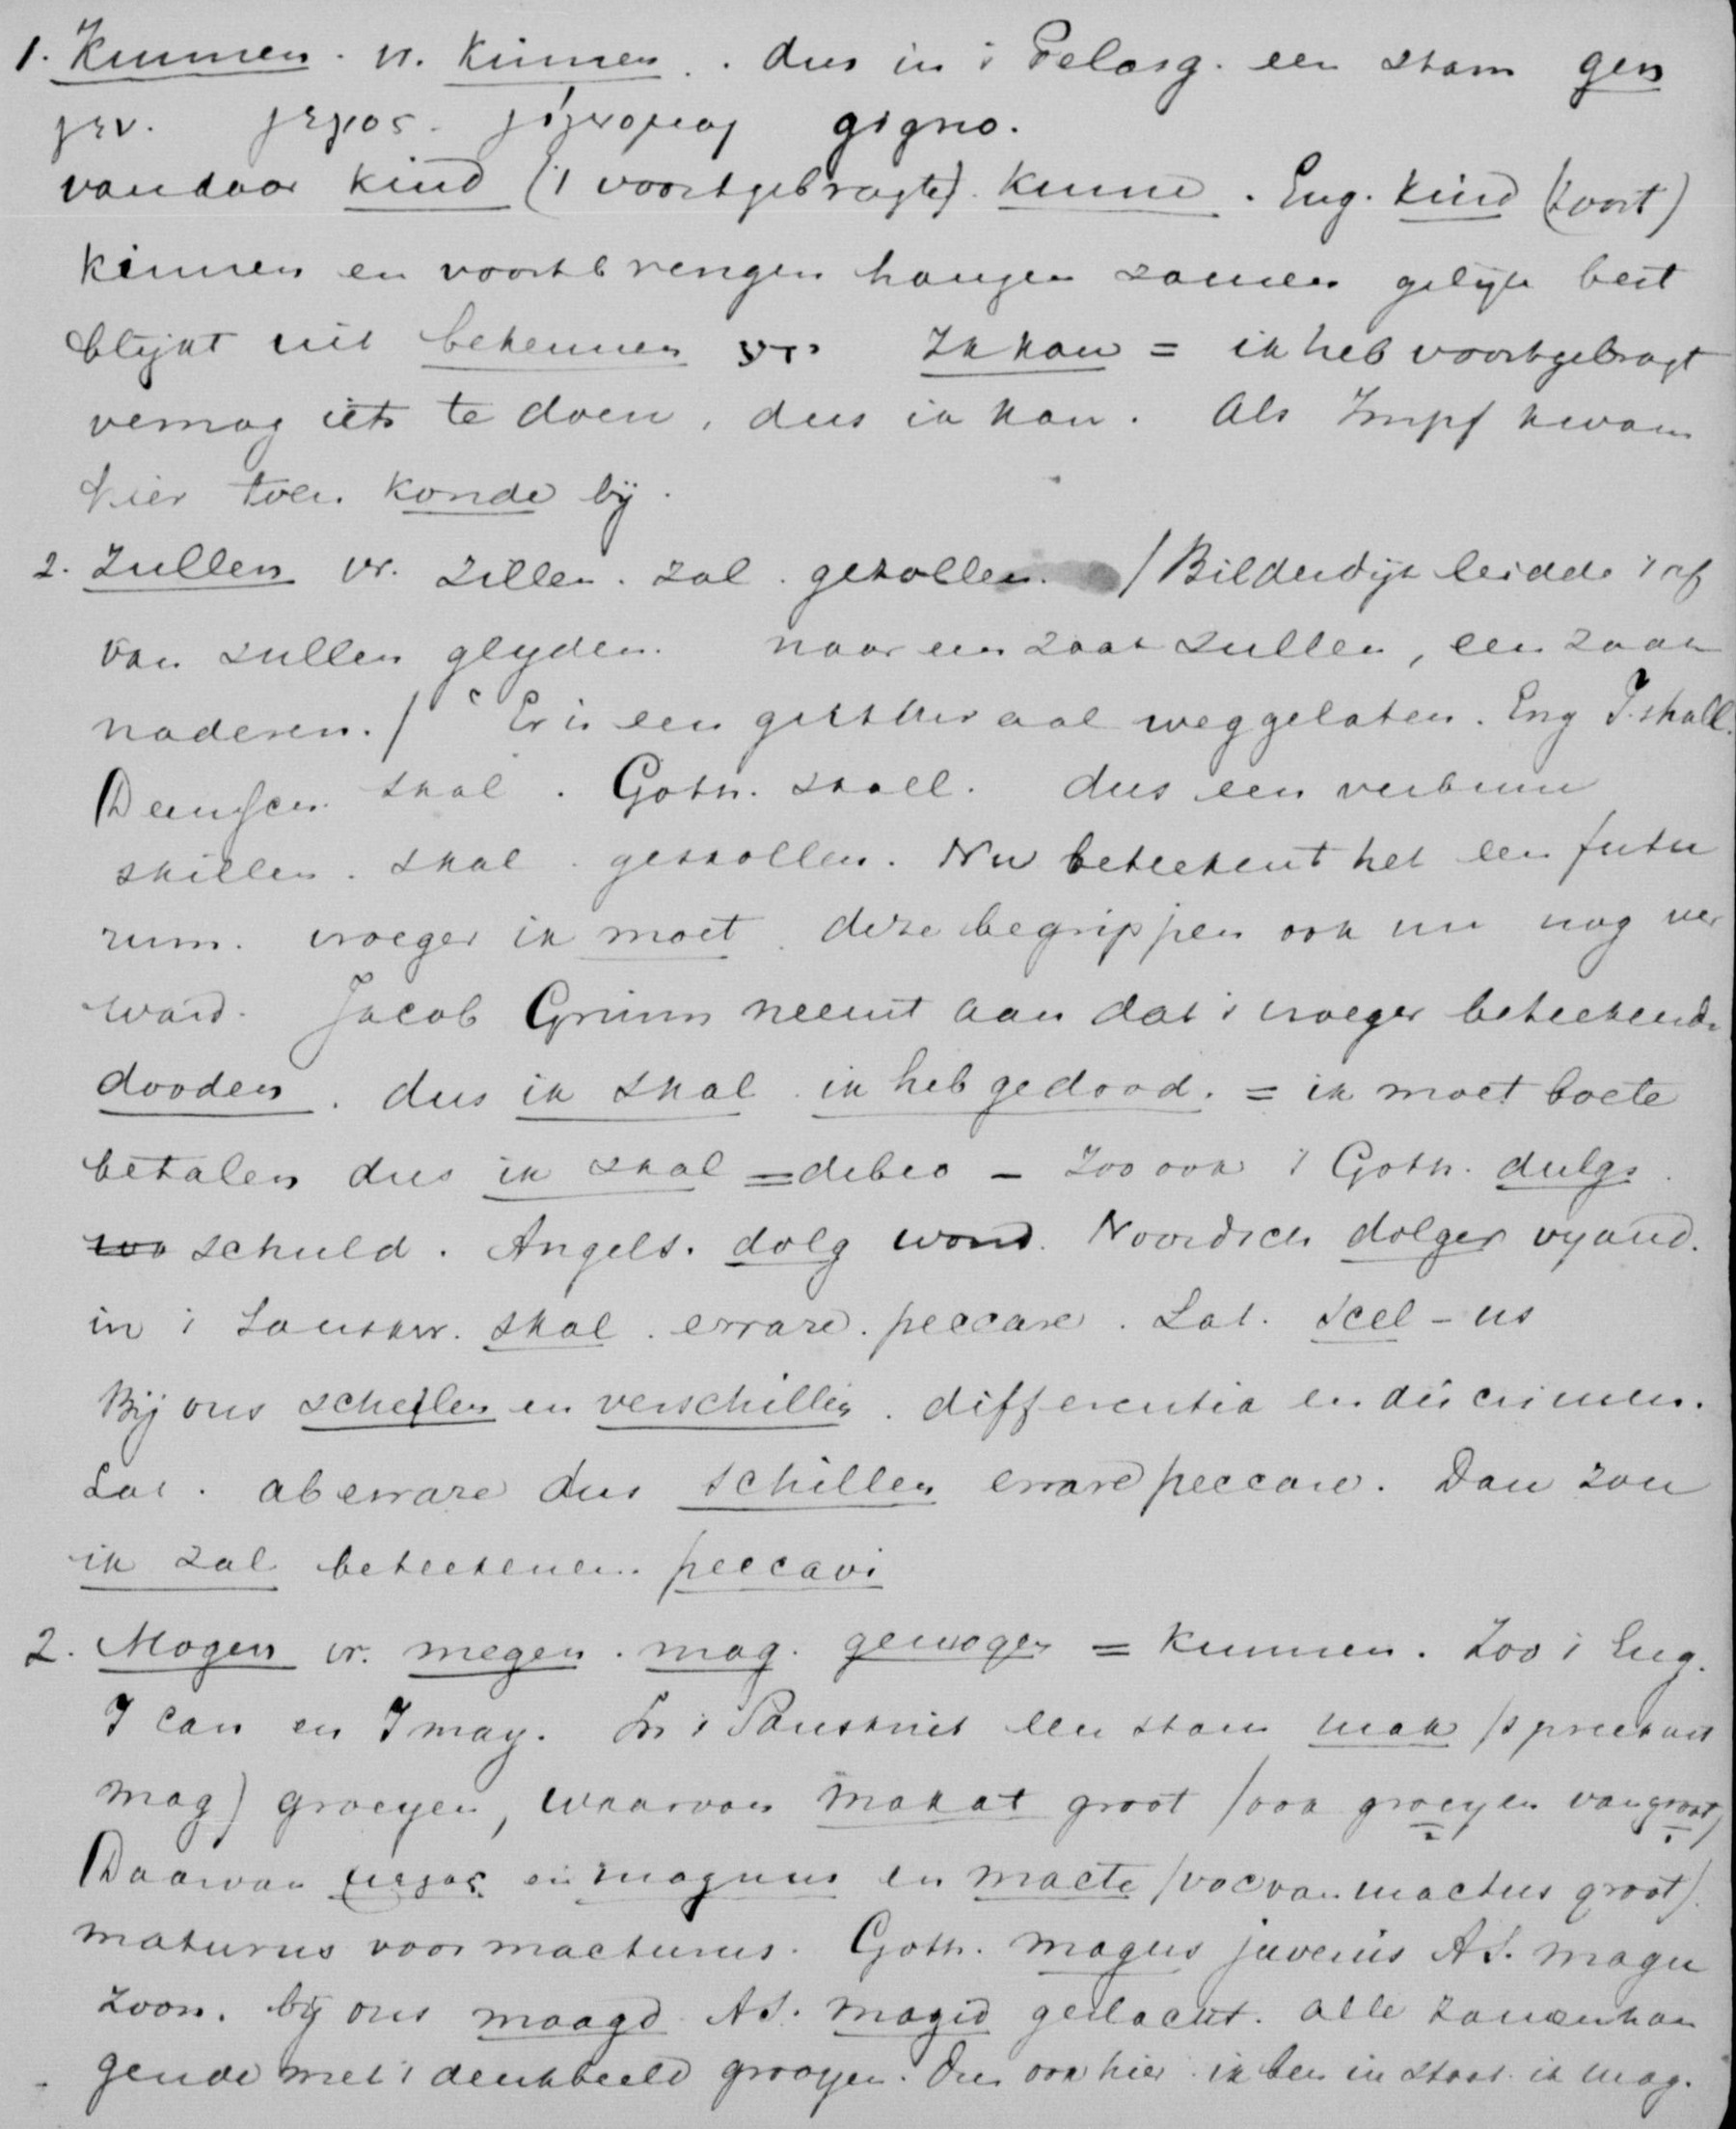 1. Kunnen. vr. kinnen. dus in 't Pelasg. een stam gen
γεν. γενος. γίγνομαι gigno.
vandaar kind ('t voortgebragte). kunne. Eng. kind (soort)
kinnen en voortbrengen hangen samen gelijk best
blijkt uit bekennen Ik kan = ik heb voortgebragt
vermag iets te doen, dus ik kan. Als Impf kwam
hier toen konde bij.
2. Zullen vr. zillen. zal. gezollen. / Bilderdijk leidde 't af
van sullen glijden. naar een zaak sullen, een zaak
naderen. / Er is een gutturaal weggelaten. Eng I shall.
Deensch. skal. Goth. skall. dus een verbum
skillen. skal. geskollen. Nu beteekent het een futu
rum. vroeger ik moet. deze begrippen ook nu nog ver
ward. Jacob Grimm neemt aan dat 't vroeger beteekende
dooden. dus ik skal. ik heb gedood. = ik moet boete
betalen dus ik skal = debeo - Zoo ook 't Goth. dulgs.
schuld. Angels. dolg wond. Noordsch dolger vyand.
in 't Sanskr. skal. errare. peccare. Lat. scel-us
Bij ons schelen en verschillen. differentia en discrimen.
Lat. aberrare dus schillen errare peccare. Dan zou
ik zal beteekenen peccavi
2. Mogen vr. megen. mag. gemogen = kunnen. Zoo 't Eng.
I can en I may. In 't Sanskrit een stam mak (spreek uit
mag) groeyen, waarvan makat groot (ook groeyen van groot)
Daarvan μεγας en magnus en macte (voc van mactus groot).
maturus voor macturus. Goth. magus juvenis A.S. magu
zoon. bij ons maagd. A.S. magid geslacht. alle zamenhan
gende met 't denkbeeld groeyen. Dus ook hier ik ben in staat ik mag.